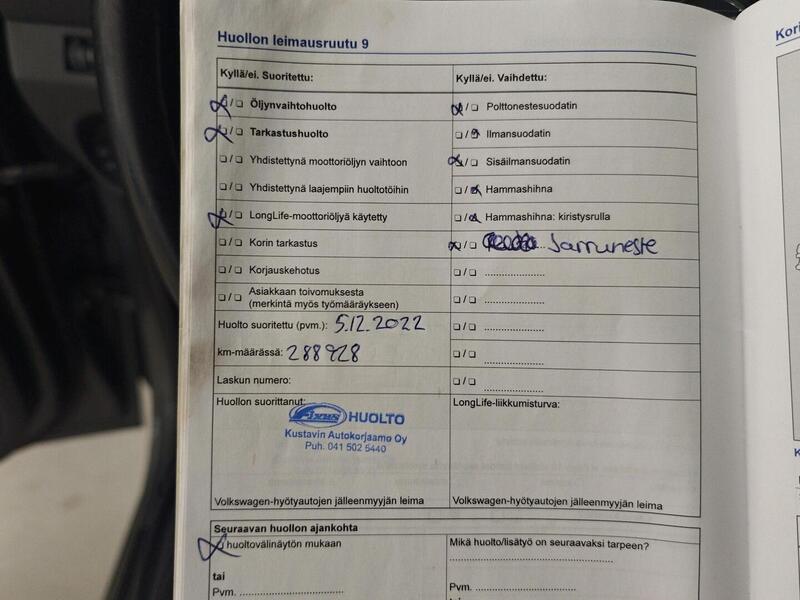 Huollon leimausruutu 9
Kyllä/ei. Suoritettu:
Öljynvaihtohuolto
Tarkastushuolto
Yhdistettynä moottoriöljyn vaihtoon
Yhdistettynä laajempiin huoltotöihin
LongLife-moottoriöljyä käytetty
Korin tarkastus
Korjauskehotus
Asiakkaan toivomuksesta
(merkintä myös työmääräykseen)
Huolto suoritettu (pvm.): 5.12.2022
km-määrässä: 288928
Laskun numero:
Huollon suorittanut:
Fixus HUOLTO
Kustavin Autokorjaamo Oy
Puh. 041 502 5440
Volkswagen-hyötyautojen jälleenmyyjän leima
Kyllä/ei. Vaihdettu:
Polttonestesuodatin
Ilmansuodatin
Sisäilmansuodatin
Hammashihna
Hammashihna: kiristysrulla
Jarruneste
LongLife-liikkumisturva:
Volkswagen-hyötyautojen jälleenmyyjän leima
Seuraavan huollon ajankohta
huoltovälinäytön mukaan
tai
Pvm.
Mikä huolto/lisätyö on seuraavaksi tarpeen?
Pvm.
Kori